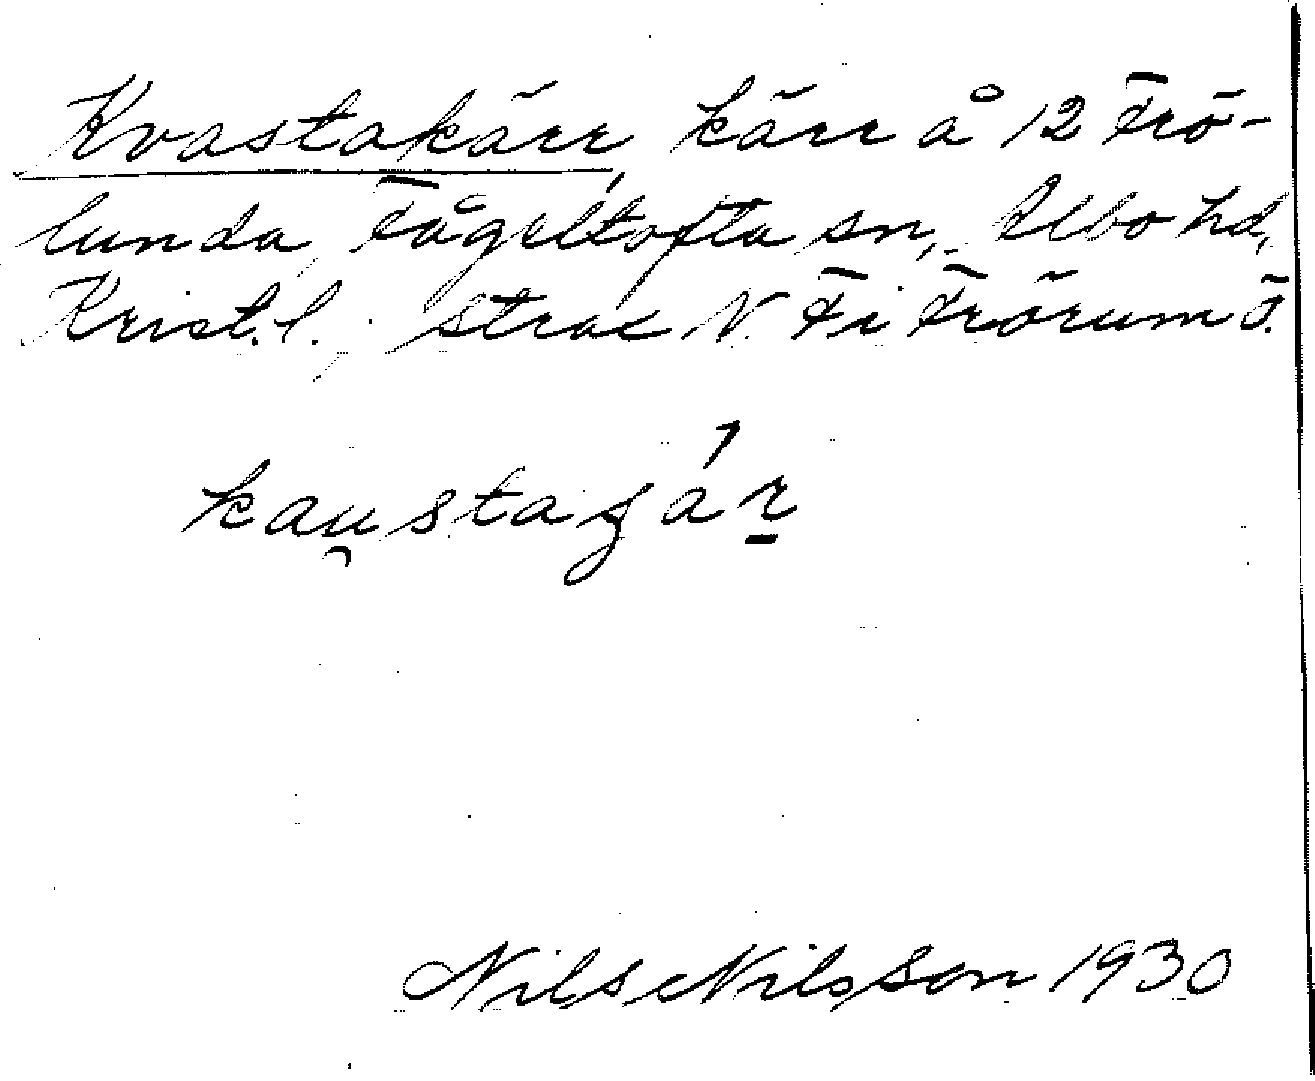 Kvastakärr, kärr å 12 Frö-
lunda, Fågeltofta sn, Albo hd,
Krist.l., strax N. Fi Frörum ö.
kau̯staɡár̠
Nils Nilsson 1930